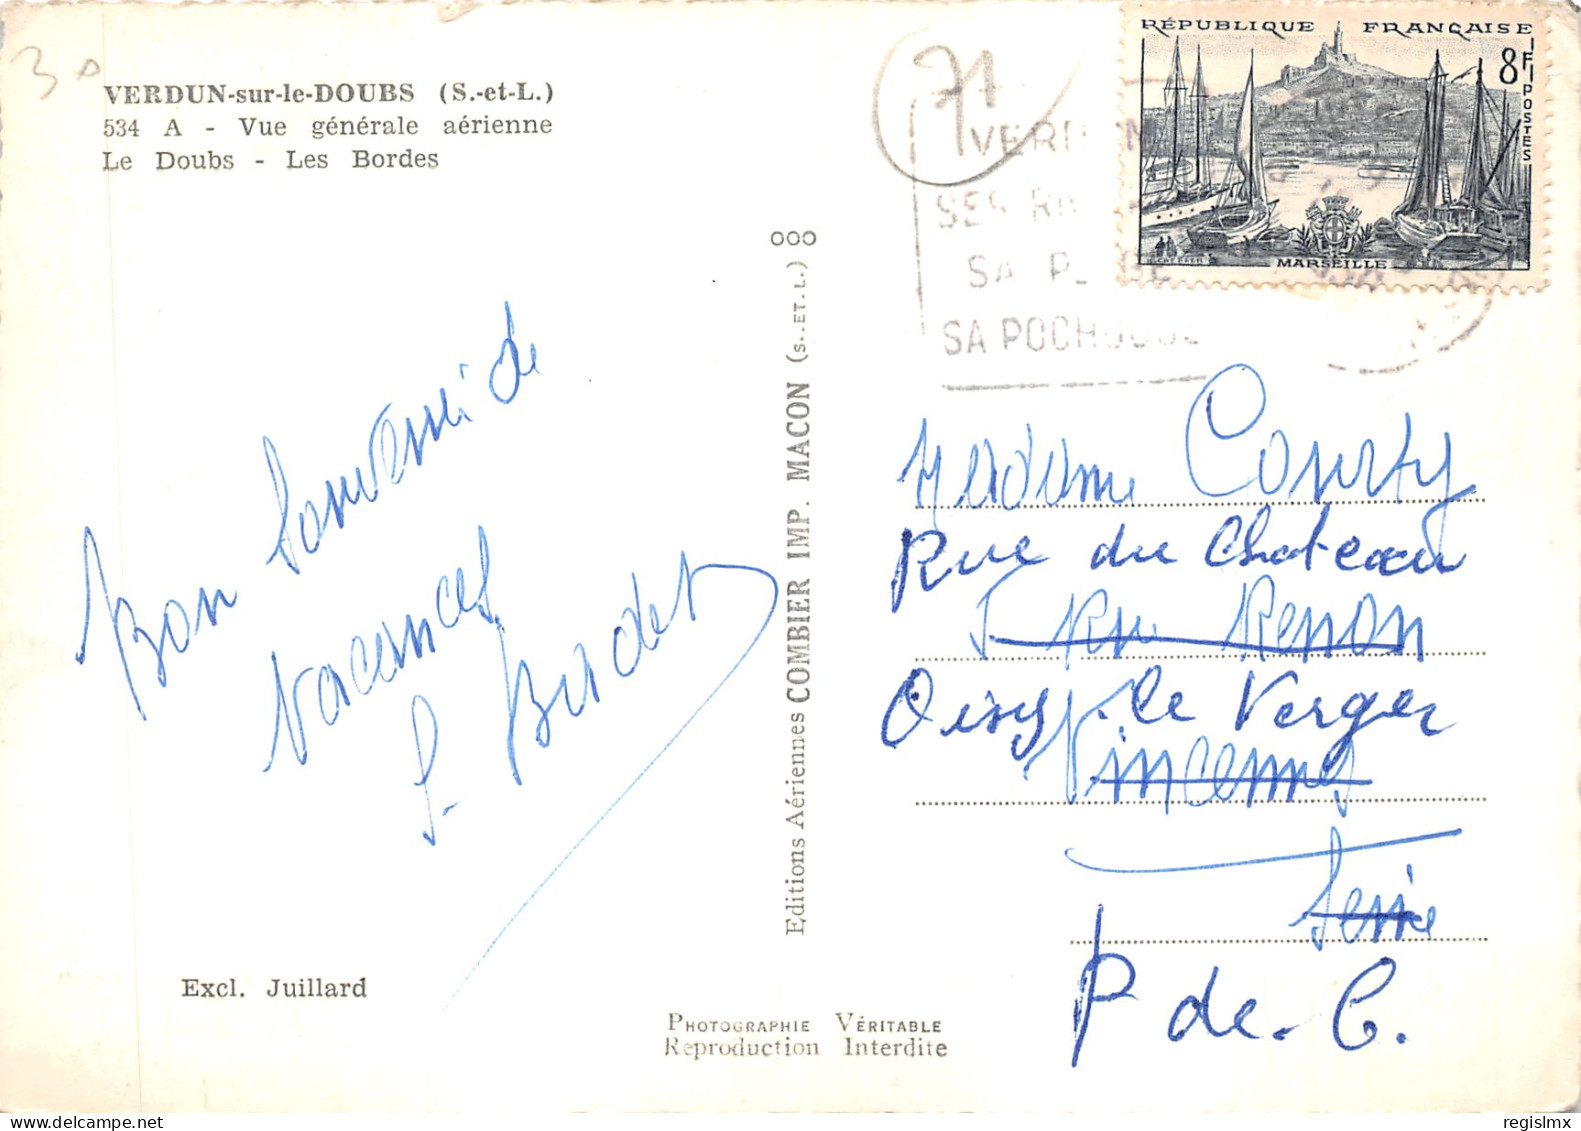 30
VERDUN-sur-le-DOUBS (S.-et-L.)
534 A - Vue générale aérienne
Le Doubs - Les Bordes
Bon Souvenir de
Vacances
S. Burdet
Excl. Juillard
Editions Aériennes COMBIER IMP. MACON (S.-ET-L.) 000
PHOTOGRAPHIE VÉRITABLE
Reproduction Interdite
71
RÉPUBLIQUE FRANÇAISE
8F
POSTES
MARSEILLE
VERDUN
SES RI
SA PL GE
SA POCHOUSE
Madame Courty
Rue du Chateau
5 Rue Renon
Oisy-le Verger
Vincennes
Seine
P de. C.
regislmx